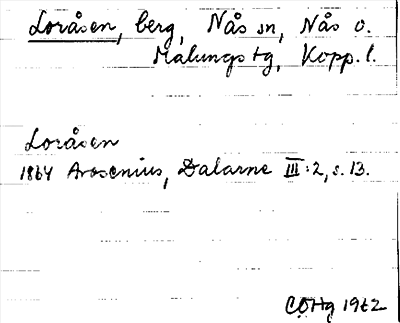 Loråsen, berg, Nås sn, Nås o.
Malungs tg, Kopp. l.
Loråsen
1864 Arosenius, Dalarne III:2, s. 13.